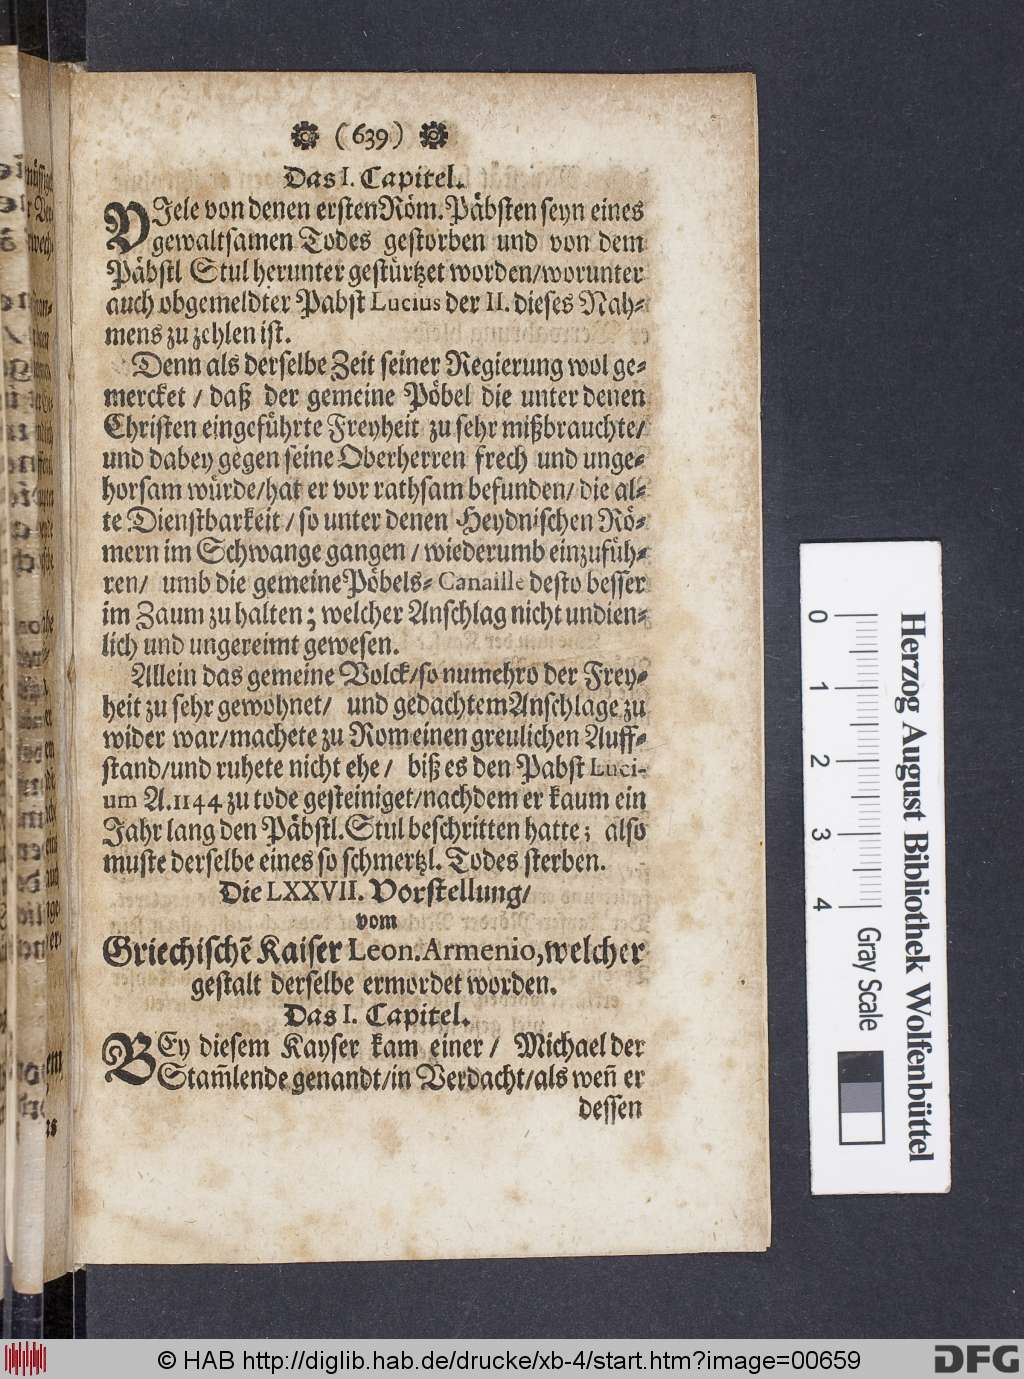 (639)
Das I. Capitel.
VIele von denen ersten Röm. Päbsten seyn eines
gewaltsamen Todes gestorben und von dem
Päbstl Stul herunter gestürtzet worden/worunter
auch obgemeldter Pabst Lucius der II. dieses Nah-
mens zu zehlen ist.
Denn als derselbe Zeit seiner Regierung wol ge-
mercket / daß der gemeine Pöbel die unter denen
Christen eingeführte Freyheit zu sehr mißbrauchte/
und dabey gegen seine Oberherren frech und unge-
horsam würde/hat er vor rathsam befunden/ die al-
te Dienstbarkeit / so unter denen Heydnischen Rö-
mern im Schwange gangen / wiederumb einzufüh-
ren/ umb die gemeine Pöbels-Canaille desto besser
im Zaum zu halten; welcher Anschlag nicht undien-
lich und ungereimt gewesen.
Allein das gemeine Volck/so numehro der Frey-
heit zu sehr gewohnet/ und gedachtem Anschlage zu
wider war/machete zu Rom einen greulichen Auff-
stand/und ruhete nicht ehe / biß es den Pabst Luci-
um A. 1144 zu tode gesteiniget/nachdem er kaum ein
Jahr lang den Päbstl. Stul beschritten hatte; also
muste derselbe eines so schmertzl. Todes sterben.
Die LXXVII. Vorstellung/
vom
Griechischẽ Kaiser Leon. Armenio, welcher
gestalt derselbe ermordet worden.
Das I. Capitel.
BEy diesem Kayser kam einer / Michael der
Stam̃lende genandt/in Verdacht/als weñ er
dessen
0 1 2 3 4
Herzog August Bibliothek Wolfenbüttel
Gray Scale
© HAB http://diglib.hab.de/drucke/xb-4/start.htm?image=00659
DFG